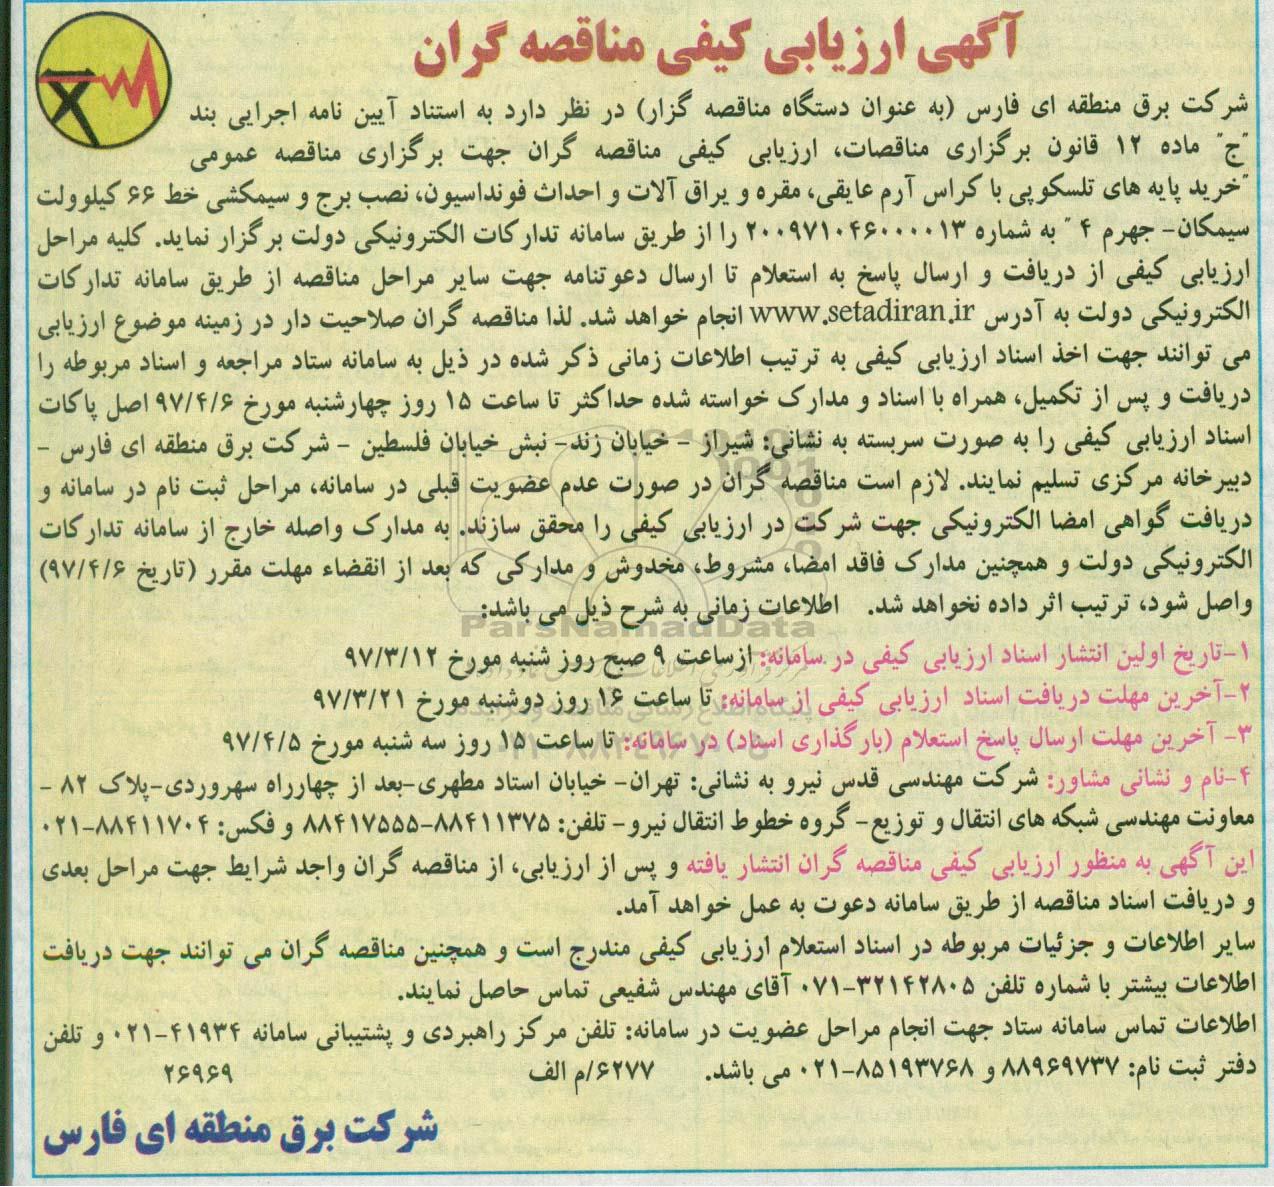 آگهی ارزیابی کیفی مناقصه گران
شرکت برق منطقه ای فارس (به عنوان دستگاه مناقصه گزار) در نظر دارد به استناد آیین نامه اجرایی بند
"ج" ماده ۱۲ قانون برگزاری مناقصات، ارزیابی کیفی مناقصه گران جهت برگزاری مناقصه عمومی
"خرید پایه های تلسکوپی با کراس آرم عایقی، مقره و یراق آلات و احداث فونداسیون، نصب برج و سیمکشی خط ۶۶ کیلوولت
سیمکان- جهرم ۴ " به شماره ۲۰۰۹۷۱۰۴۶۰۰۰۰۱۳ را از طریق سامانه تدارکات الکترونیکی دولت برگزار نماید. کلیه مراحل
ارزیابی کیفی از دریافت و ارسال پاسخ به استعلام تا ارسال دعوتنامه جهت سایر مراحل مناقصه از طریق سامانه تدارکات
الکترونیکی دولت به آدرس www.setadiran.ir انجام خواهد شد. لذا مناقصه گران صلاحیت دار در زمینه موضوع ارزیابی
می توانند جهت اخذ اسناد ارزیابی کیفی به ترتیب اطلاعات زمانی ذکر شده در ذیل به سامانه ستاد مراجعه و اسناد مربوطه را
دریافت و پس از تکمیل، همراه با اسناد و مدارک خواسته شده حداکثر تا ساعت ۱۵ روز چهارشنبه مورخ ۹۷/۴/۶ اصل پاکات
اسناد ارزیابی کیفی را به صورت سربسته به نشانی: شیراز - خیابان زند- نبش خیابان فلسطین - شرکت برق منطقه ای فارس -
دبیرخانه مرکزی تسلیم نمایند. لازم است مناقصه گران در صورت عدم عضویت قبلی در سامانه، مراحل ثبت نام در سامانه و
دریافت گواهی امضا الکترونیکی جهت شرکت در ارزیابی کیفی را محقق سازند. به مدارک واصله خارج از سامانه تدارکات
الکترونیکی دولت و همچنین مدارک فاقد امضا، مشروط، مخدوش و مدارکی که بعد از انقضاء مهلت مقرر (تاریخ ۹۷/۴/۶)
واصل شود، ترتیب اثر داده نخواهد شد. اطلاعات زمانی به شرح ذیل می باشد:
ParsNamadData
۱-تاریخ اولین انتشار اسناد ارزیابی کیفی در سامانه: ازساعت ۹ صبح روز شنبه مورخ ۹۷/۳/۱۲
۲-آخرین مهلت دریافت اسناد ارزیابی کیفی از سامانه: تا ساعت ۱۶ روز دوشنبه مورخ ۹۷/۳/۲۱
۳- آخرین مهلت ارسال پاسخ استعلام (بارگذاری اسناد) در سامانه: تا ساعت ۱۵ روز سه شنبه مورخ ۹۷/۴/۵
۴-نام و نشانی مشاور: شرکت مهندسی قدس نیرو به نشانی: تهران- خیابان استاد مطهری-بعد از چهارراه سهروردی-پلاک ۸۲ -
معاونت مهندسی شبکه های انتقال و توزیع- گروه خطوط انتقال نیرو- تلفن: ۸۸۴۱۱۳۷۵-۸۸۴۱۷۵۵۵ و فکس: ۸۸۴۱۱۷۰۴-۰۲۱
این آگهی به منظور ارزیابی کیفی مناقصه گران انتشار یافته و پس از ارزیابی، از مناقصه گران واجد شرایط جهت مراحل بعدی
و دریافت اسناد مناقصه از طریق سامانه دعوت به عمل خواهد آمد.
سایر اطلاعات و جزئیات مربوطه در اسناد استعلام ارزیابی کیفی مندرج است و همچنین مناقصه گران می توانند جهت دریافت
اطلاعات بیشتر با شماره تلفن ۳۲۱۴۲۸۰۵-۰۷۱ آقای مهندس شفیعی تماس حاصل نمایند.
اطلاعات تماس سامانه ستاد جهت انجام مراحل عضویت در سامانه: تلفن مرکز راهبردی و پشتیبانی سامانه ۴۱۹۳۴-۰۲۱ و تلفن
دفتر ثبت نام: ۸۸۹۶۹۷۳۷ و ۸۵۱۹۳۷۶۸-۰۲۱ می باشد. ۶۲۷۷/م الف ۲۶۹۶۹
شرکت برق منطقه ای فارس